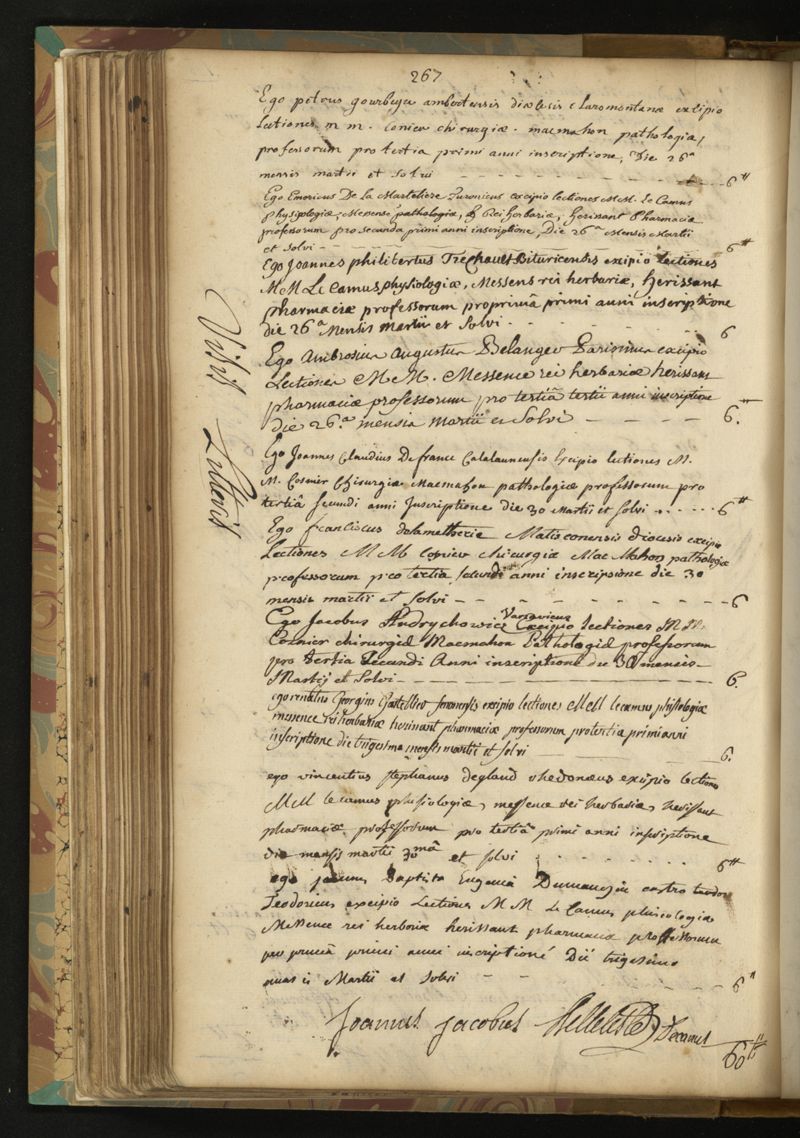 267
Ego petrus gourbeyre ambertensis diœlesis claromontanæ excipio
Lectiones m m. Cosnier chirurgiæ. macmahon pathologiæ,
professorum pro tertia primi anni inscriptione, Die 26ª
mensis martii et solvi 6 ᵗᵗ
Ego Emericus De La Marteliere Turonicus excipio lectiones MM. Le Camus
physiologiæ, Messense pathologiæ, & Rei herbariæ, herissant Pharmaciæ
professorum pro secunda primi anni inscriptione, Die 26ª Mensis Martii
et solvi 6 ᵗᵗ
Ego Joannes philibertus Bituricensis exipio Lectiones
M M Le Camus physiologiæ, Messens rei herbariæ, herissant
pharmaciæ professorum pro primâ primi anni inscriptione
die 26ª Mensis Martii et Solvi 6
Ego Ambrosius Augustus Belanger Parisinus excipio
Lectiones M. M. Messence rei herbariæ herissant
pharmaciæ professorum pro tertiâ tertii anni inscriptione
die 26ª mensis Martii et Solvi 6.
Ego Joannes Claudius Defrance Catalaunensis Excipio lectiones M.
M. Cosnier Chirurgiæ Macmahon pathologiæ professorum pro
tertiâ secundi anni Inscriptione die 30 Martii et solvi 6 ᵗᵗ
Ego franciscus delametherie Matisconensis diocesis excipio
Lectiones M M Cosnier chirurgiæ Mac Mahon pathologiæ
professorum pro tertia secundi anni inscripsione die 30
mensis martii et solvi 6
Ego Jacobus Andrychowicz Varsavicus Excipio Lectiones M M.
Cosnier chirurgiæ Macmahon Pathologiæ professorum
pro tertia Secundi Anni inscriptione die 30 mensis
Martij et Solvi 6.
ego renatus Georgius Gastellier excipio lectiones MM lecamus phisiologiæ
messence rei herbariæ herissant pharmaciæ professorum pro tertia primi anni
inscriptione die trigesima mensis martii et solvi 6.
ego vincentius stephanus degland rhedonæus excipio lectiones
M M le camus phisiologiæ, messence rei herbariæ, herissant
pharmaciæ professorum pro tertiâ primi anni inscriptione
die mensis martii 30mâ et solvi 6 ᵗᵗ
ego joannes Baptista Eugenius castro
Teodoricus excipio Lectiones M M Le Camus phisiologiæ
Messence rei herbariæ herissant pharmaciæ professorum
pro primâ primi anni inscriptione Die trigesimo
mensis Martii et Solvi 6 ᵗᵗ
Visis Lutetiis
Joannes Jacobus Belleteste Decanus
60 ᵗᵗ